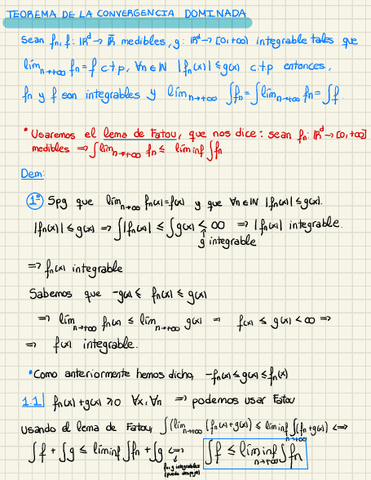 TEOREMA DE LA CONVERGENCIA DOMINADA
Sean fn, f: ℝᵈ → ℝ̄ medibles, g: ℝᵈ → [0,+∞) integrable tales que
lím n→+∞ fn = f ctp, ∀n∈ℕ |fn(x)| ≤ g(x) ctp entonces,
fn y f son integrables y lím n→+∞ ∫fn = ∫lím n→+∞ fn = ∫f
* Usaremos el lema de Fatou, que nos dice: sean fn: ℝᵈ → [0,+∞]
medibles ⇒ ∫lím n→+∞ fn ≤ lím inf ∫fn
Dem:
1º Spg que lím n→+∞ fn(x)=f(x) y que ∀n∈ℕ |fn(x)| ≤ g(x).
|fn(x)| ≤ g(x) ⇒ ∫|fn(x)| ≤ ∫g(x) < ∞ ⇒ |fn(x)| integrable.
g integrable
⇒ fn(x) integrable
Sabemos que -g(x) ≤ fn(x) ≤ g(x)
⇒ lím n→+∞ fn(x) ≤ lím n→+∞ g(x) ⇒ f(x) ≤ g(x) < ∞ ⇒
⇒ f(x) integrable.
* Como anteriormente hemos dicho, -fn(x) ≤ g(x) ≤ fn(x)
1.1 fn(x)+g(x) ≥ 0 ∀x,∀n ⇒ podemos usar Fatou
Usando el lema de Fatou, ∫(lím n→+∞ (fn(x)+g(x)) ≤ lím inf n→+∞ ∫(fn+g) ⇔
∫f + ∫g ≤ lím inf ∫fn + ∫g ⇔ ∫f ≤ lím inf n→+∞ ∫fn
fn, g integrables